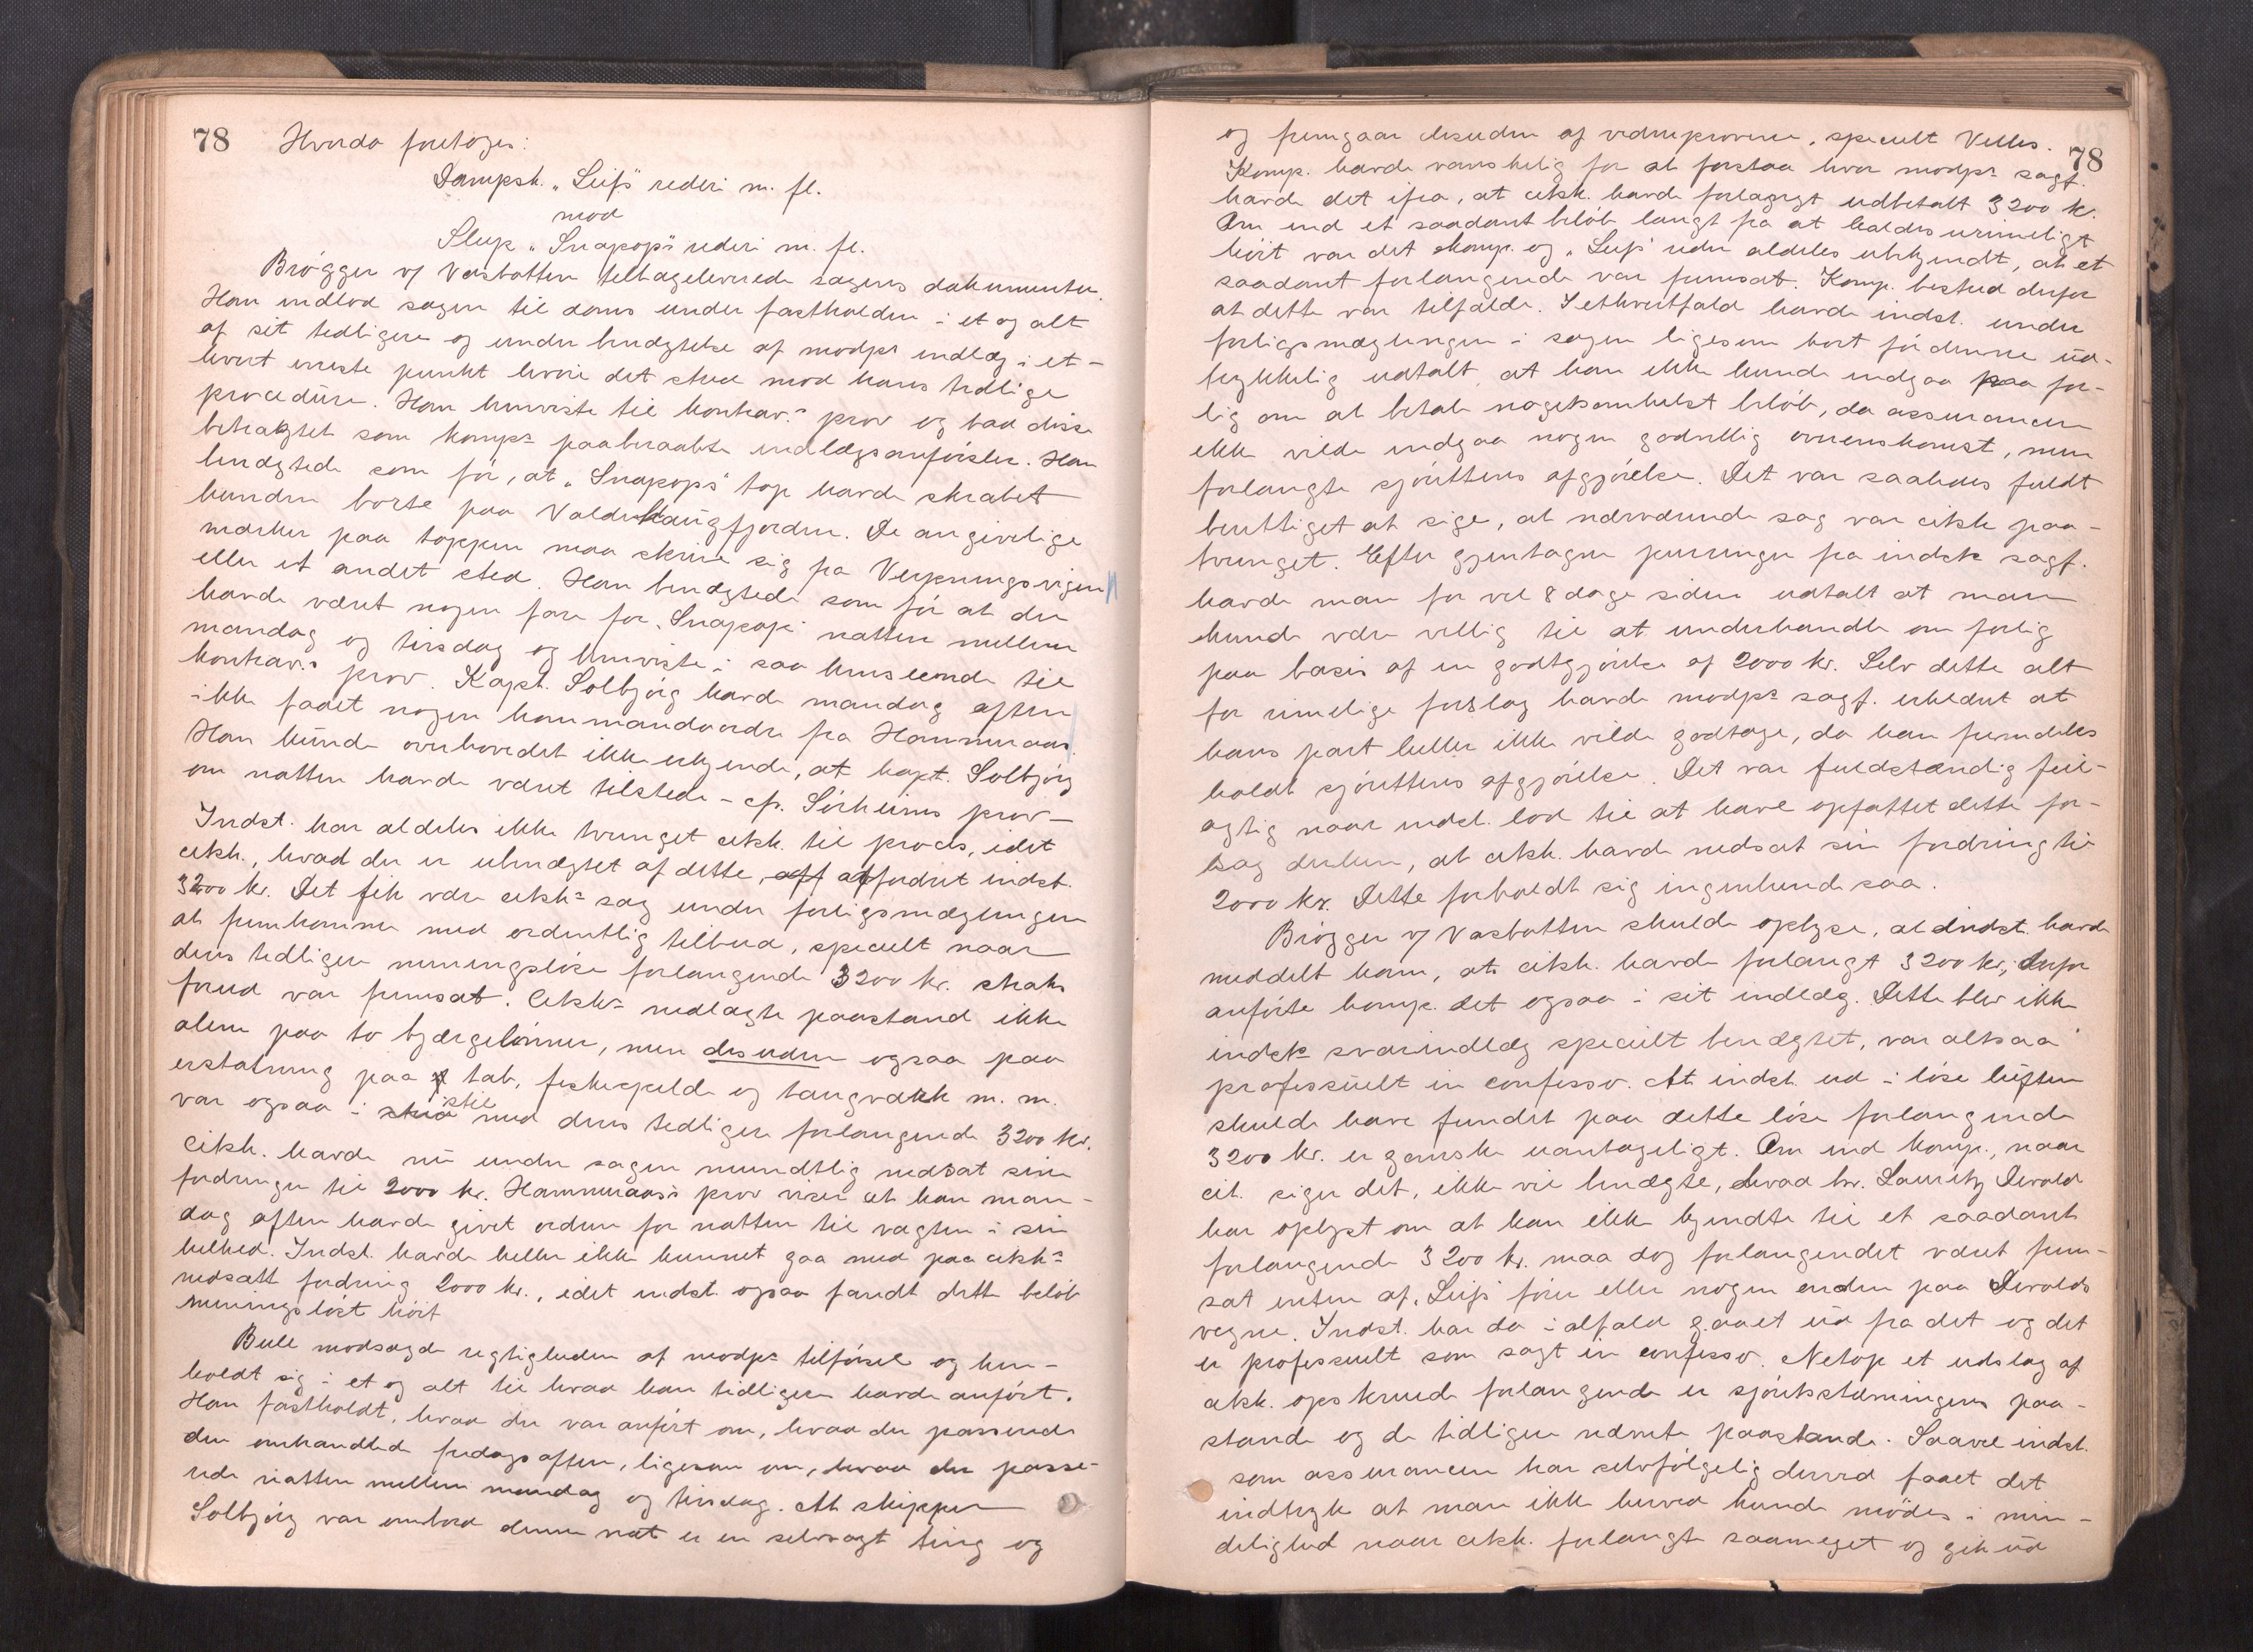 78 Hvorda foretoges:
Dampsk. "Leif's" rederi m. fl.
mod
Slup "Snapop's" rederi m. fl.
Brøgger v/ Vasbotten tilbageleverede sagens dokumenter.
Han indlod sagen til doms under fastholden i et og alt
af sit tidligere og under benægtelse af modp.s indlæg i et-
hvert eneste punkt hvori det stred mod hans tidlige
procedüre. Han henviste til kontrav.s prov og bad disse
betragtet som komp.s paaberaabte indlægsanførsler. Han
benægtede som før, at "Snapop's" top havde skrabet
bunden borte paa Valderhaugfjorden. De angivelige
merker paa toppen maa skrive sig fra Vegsundsvigen
eller et andet sted. Han benægtede som før at der
havde været nogen fare for "Snapop" natten mellem
mandag og tirsdag og henviste i saa henseende til
kontrav.s prov. Kapt. Solbjørg havde mandag aften
ikke faaet nogen kommandoordre fra Hammeraas.
Han kunde overhovedet ikke erkjende, at kapt. Solbjørg
om natten havde været tilstede – cfr. Sørheims prov –
Indst. har aldeles ikke tvunget citk. til proces, idet
citk., hvad der er ubenægtet af dette, affordret indst.
3200 kr. Det fik være citk.s sag under forligsmæglingen
at fremkomme med ordentlig tilbud, specielt naar
dens tidligere meningsløse forlangende 3200 kr. straks
forud var fremsat. Citk.s nedlagte paastand ikke
alene paa to bjærgelønner, men desuden ogsaa paa
erstatning paa tab, fiskespilde og taugværk m. m.
var ogsaa i stil med dens tidligere forlangende 3200 kr.
Citk. havde nü under sagen mundtlig nedsat sine
fordringer til 2000 kr. Hammeraas's prov viser at han man-
dag aften havde givet ordren for natten til vagten i sin
helhed. Indst. havde heller ikke kunnet gaa med paa citk.s
nedsatt fordring 2000 kr., idet indst. ogsaa fandt dette beløb
meningsløst høit
Bull modsagde rigtigheden af modp.s tilførsel og hen-
holdt sig i et og alt til hvad han tidligere havde anført.
Han fastholdt, hvad der var anført om, hvad der passerede
den omhandlede fredagsaften, ligesom om, hvad der passe-
rede natten mellem mandag og tirsdag. At skipper
Solbjørg var ombord denne nat er en selvsagt ting og
78
og fremgaar desuden af vidneproverne, specielt Velles.
Komp. havde vanskelig for at forstaa hvor modp.s sagf.
havde det ifra, at citk. havde forlangt udbetalt 3200 kr.
Om end et saadant beløb langt fra at kaldes urimeligt
høit var det komp. og "Leif's" rederi aldeles ubekjendt, at et
saadant forlangende var fremsat. Komp. bestred derfor
at dette var tilfælde. I ethvertfald havde indst. under
forligsmæglingen i sagen ligesom bort før denne üd-
trykkelig udtalt, at han ikke kunde indgaa paa for-
lig om at betale nogetsomhelst beløb, da assurancen
ikke vilde indgaa nogen godvillig overenskomst, men
forlangte sjørettens afgjørelse. Det var saaledes fuldt
berettiget at sige, at nærværende sag var citk. paa-
tvunget. Efter gjentagne purringer fra indst.s sagf.
havde man for vel 8 dage siden udtalt at man
kunde være villig til at underhandle om forlig
paa basis af en godtgjørelse af 2000 kr. Selv dette alt
for rimelige forslag havde modp.s sagf. erklæret at
hans part heller ikke vilde godtage, da han fremdeles
holdt sjørettens afgjørelse. Det var fuldstændig feil-
agtig naar indst. lod til at have opfattet dette for-
slag derhen, at citk. havde nedsat sin fordring til
2000 kr. Dette forholdt sig ingenlunde saa.
Brøgger v/ Vasbotten skulde oplyse, at indst. havde
meddelt ham, at citk. havde forlangt 3200 kr.; derfor
anførte komp. det ogsaa i sit indlæg. Dette blev ikke
indst.s svarindlæg specielt benægtet, var altsaa
professuelt in confesso. At indst. ud i løse lüften
skulde have fundet paa dette løse forlangende
3200 kr. er ganske uantageligt. Om end komp., naar
cit. siger det, ikke vil benægte, hvad hr. Lauritz Devold
har oplyst om at han ikke kjendte til et saadant
forlangende 3200 kr. maa dog forlangendet været frem-
sat enten af "Leif's" fører eller nogen anden paa Devolds
vegne. Indst. har da i alfald gaaet ud fra det og det
er professuelt som sagt in confesso. Netop et udslag af
citk. opskruede forlangende er sjøretsstævningens paa-
stande og de tidligere nævnte paastande. Saavel indst.
som assurancen har selvfølgelig derved faaet det
indtryk at man ikke herved kunde mødes i min-
delighed naar citk. forlangt saameget og gik ud